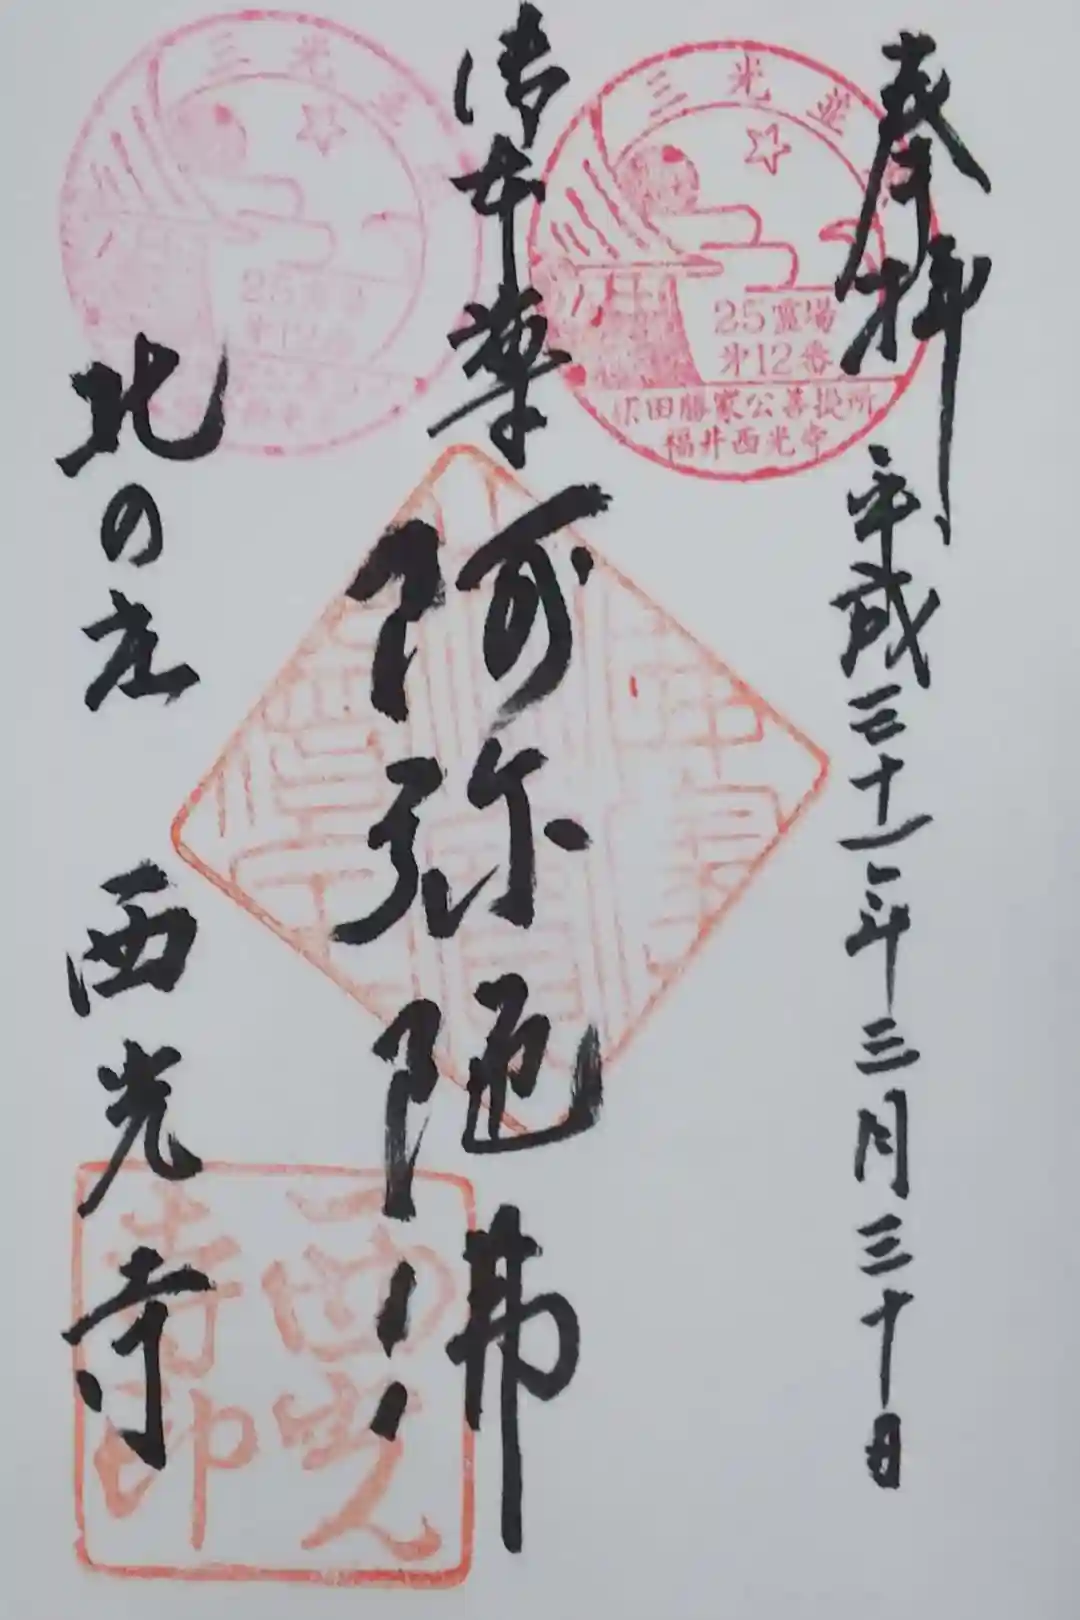 奉拝 平成三十一年三月三十日
御本尊
阿弥陀佛
北の庄 西光寺
三光並
25霊場
第12番
柴田勝家公菩提所
福井西光寺
三光並
25霊場
第12番
西光寺印